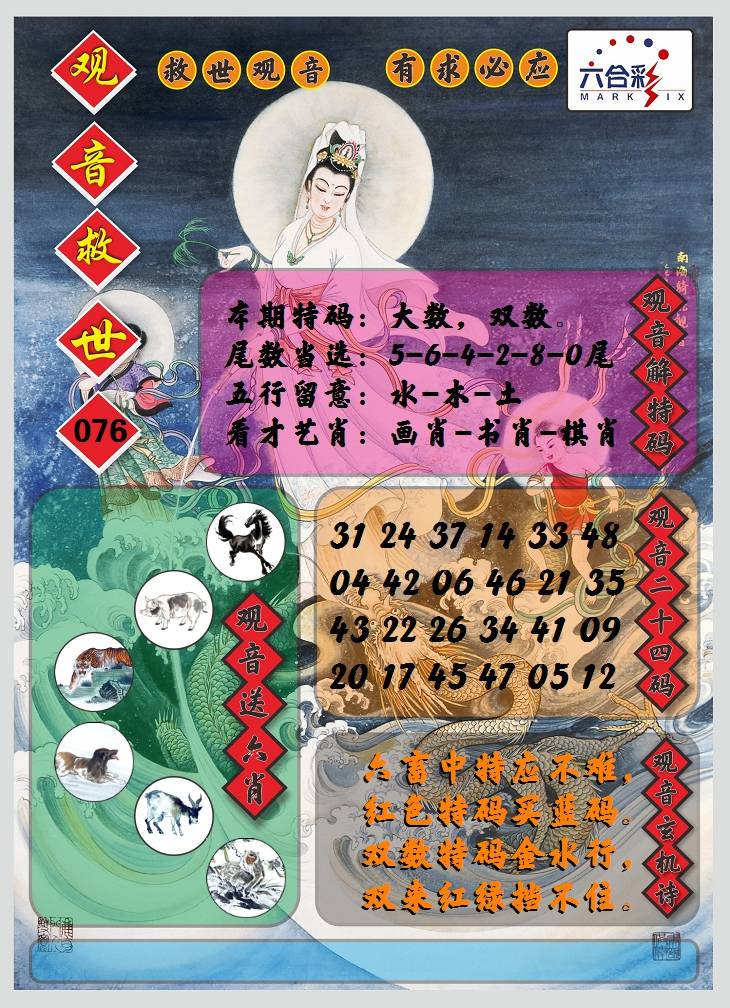 观音救世
076
救世观音 有求必应
六合彩
MARK SIX
南海
观音解特码
本期特码：大数，双数。
尾数当选：5-6-4-2-8-0尾
五行留意：水-木-土
看才艺肖：画肖-书肖-棋肖
观音二十四码
31 24 37 14 33 48
04 42 06 46 21 35
43 22 26 34 41 09
20 17 45 47 05 12
观音送六肖
观音玄机诗
六畜中特应不难，
红色特码买蓝码。
双数特码金水行，
双来红绿挡不住。